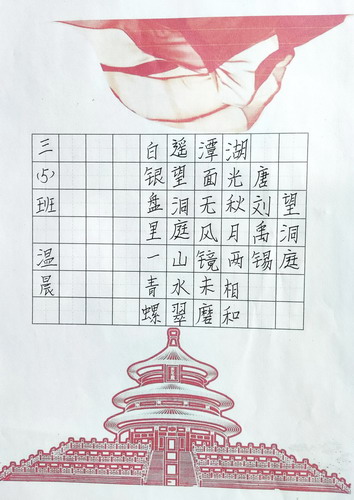 望洞庭
唐刘禹锡
湖光秋月两相和
潭面无风镜未磨
遥望洞庭山水翠
白银盘里一青螺
三(5)班 温晨